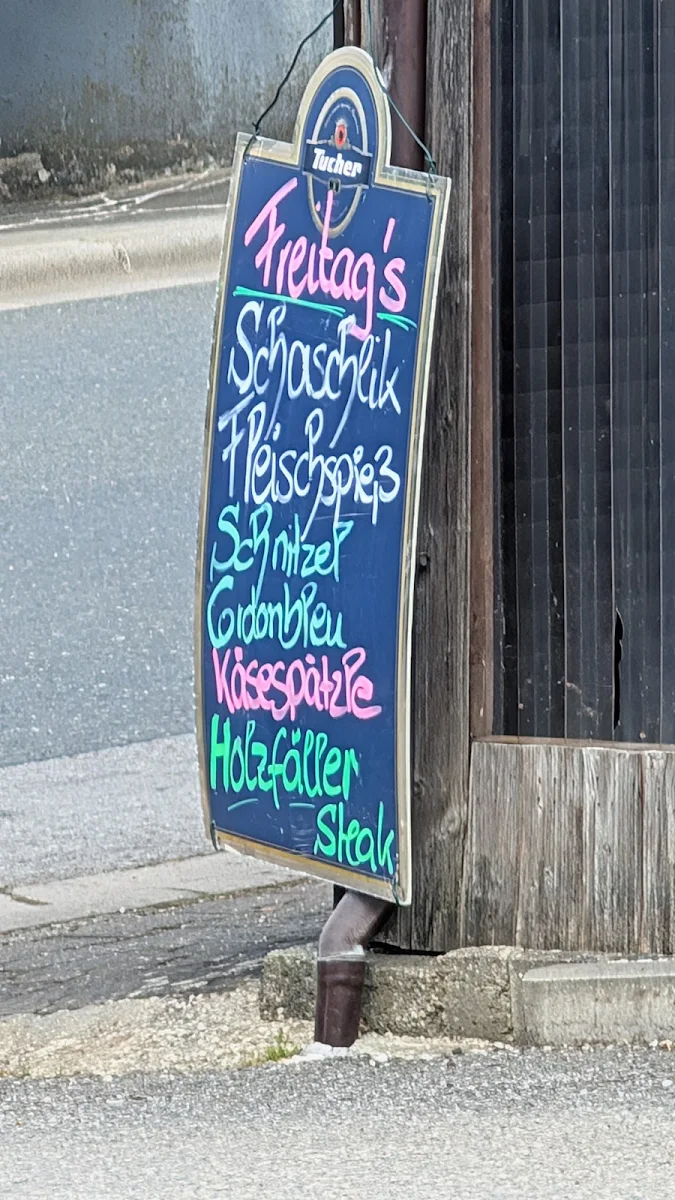 Tucher
Freitag's
Schaschlik
Fleischspieß
Schnitzel
Cordonbleu
Käsespätzle
Holzfäller
Steak